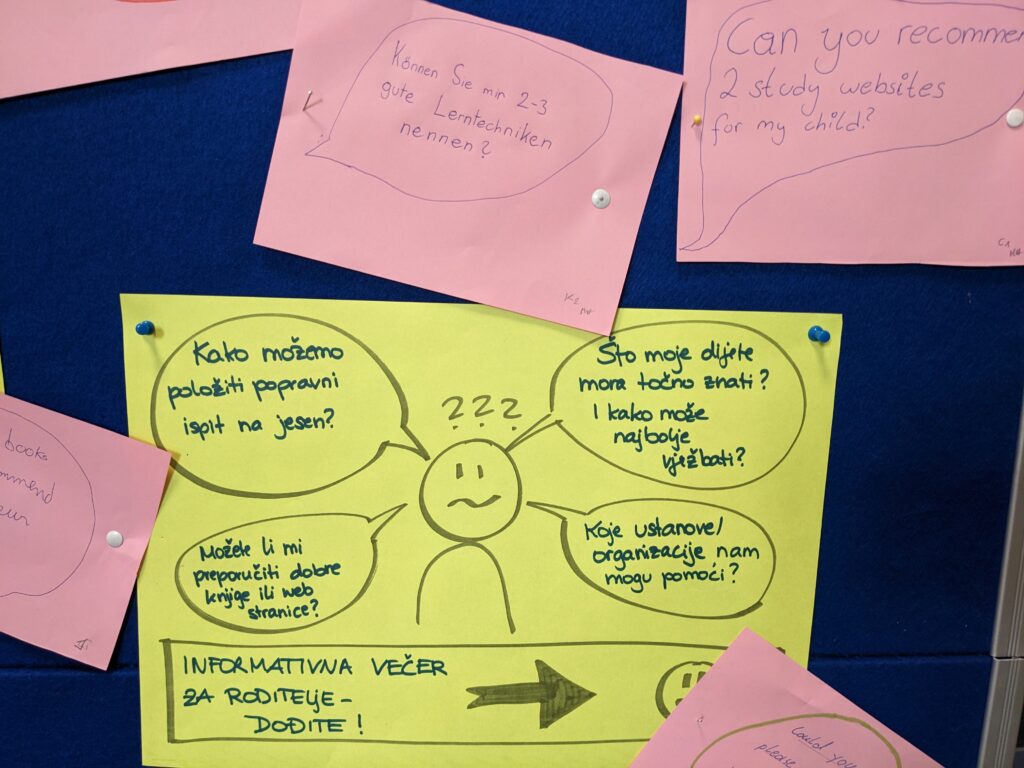 Können Sie mir 2-3
gute Lerntechniken
nennen?
Can you recomme
2 study websites
for my child?
Kako možemo
položiti popravni
ispit na jesen?
???
Što moje dijete
mora točno znati?
I kako može
najbolje
vježbati?
books
mmend
eur
Možete li mi
preporučiti dobre
knjige ili web
stranice?
Koje ustanove/
organizacije nam
mogu pomoći?
INFORMATIVNA VEČER
ZA RODITELJE -
DOĐITE!
Could you
please